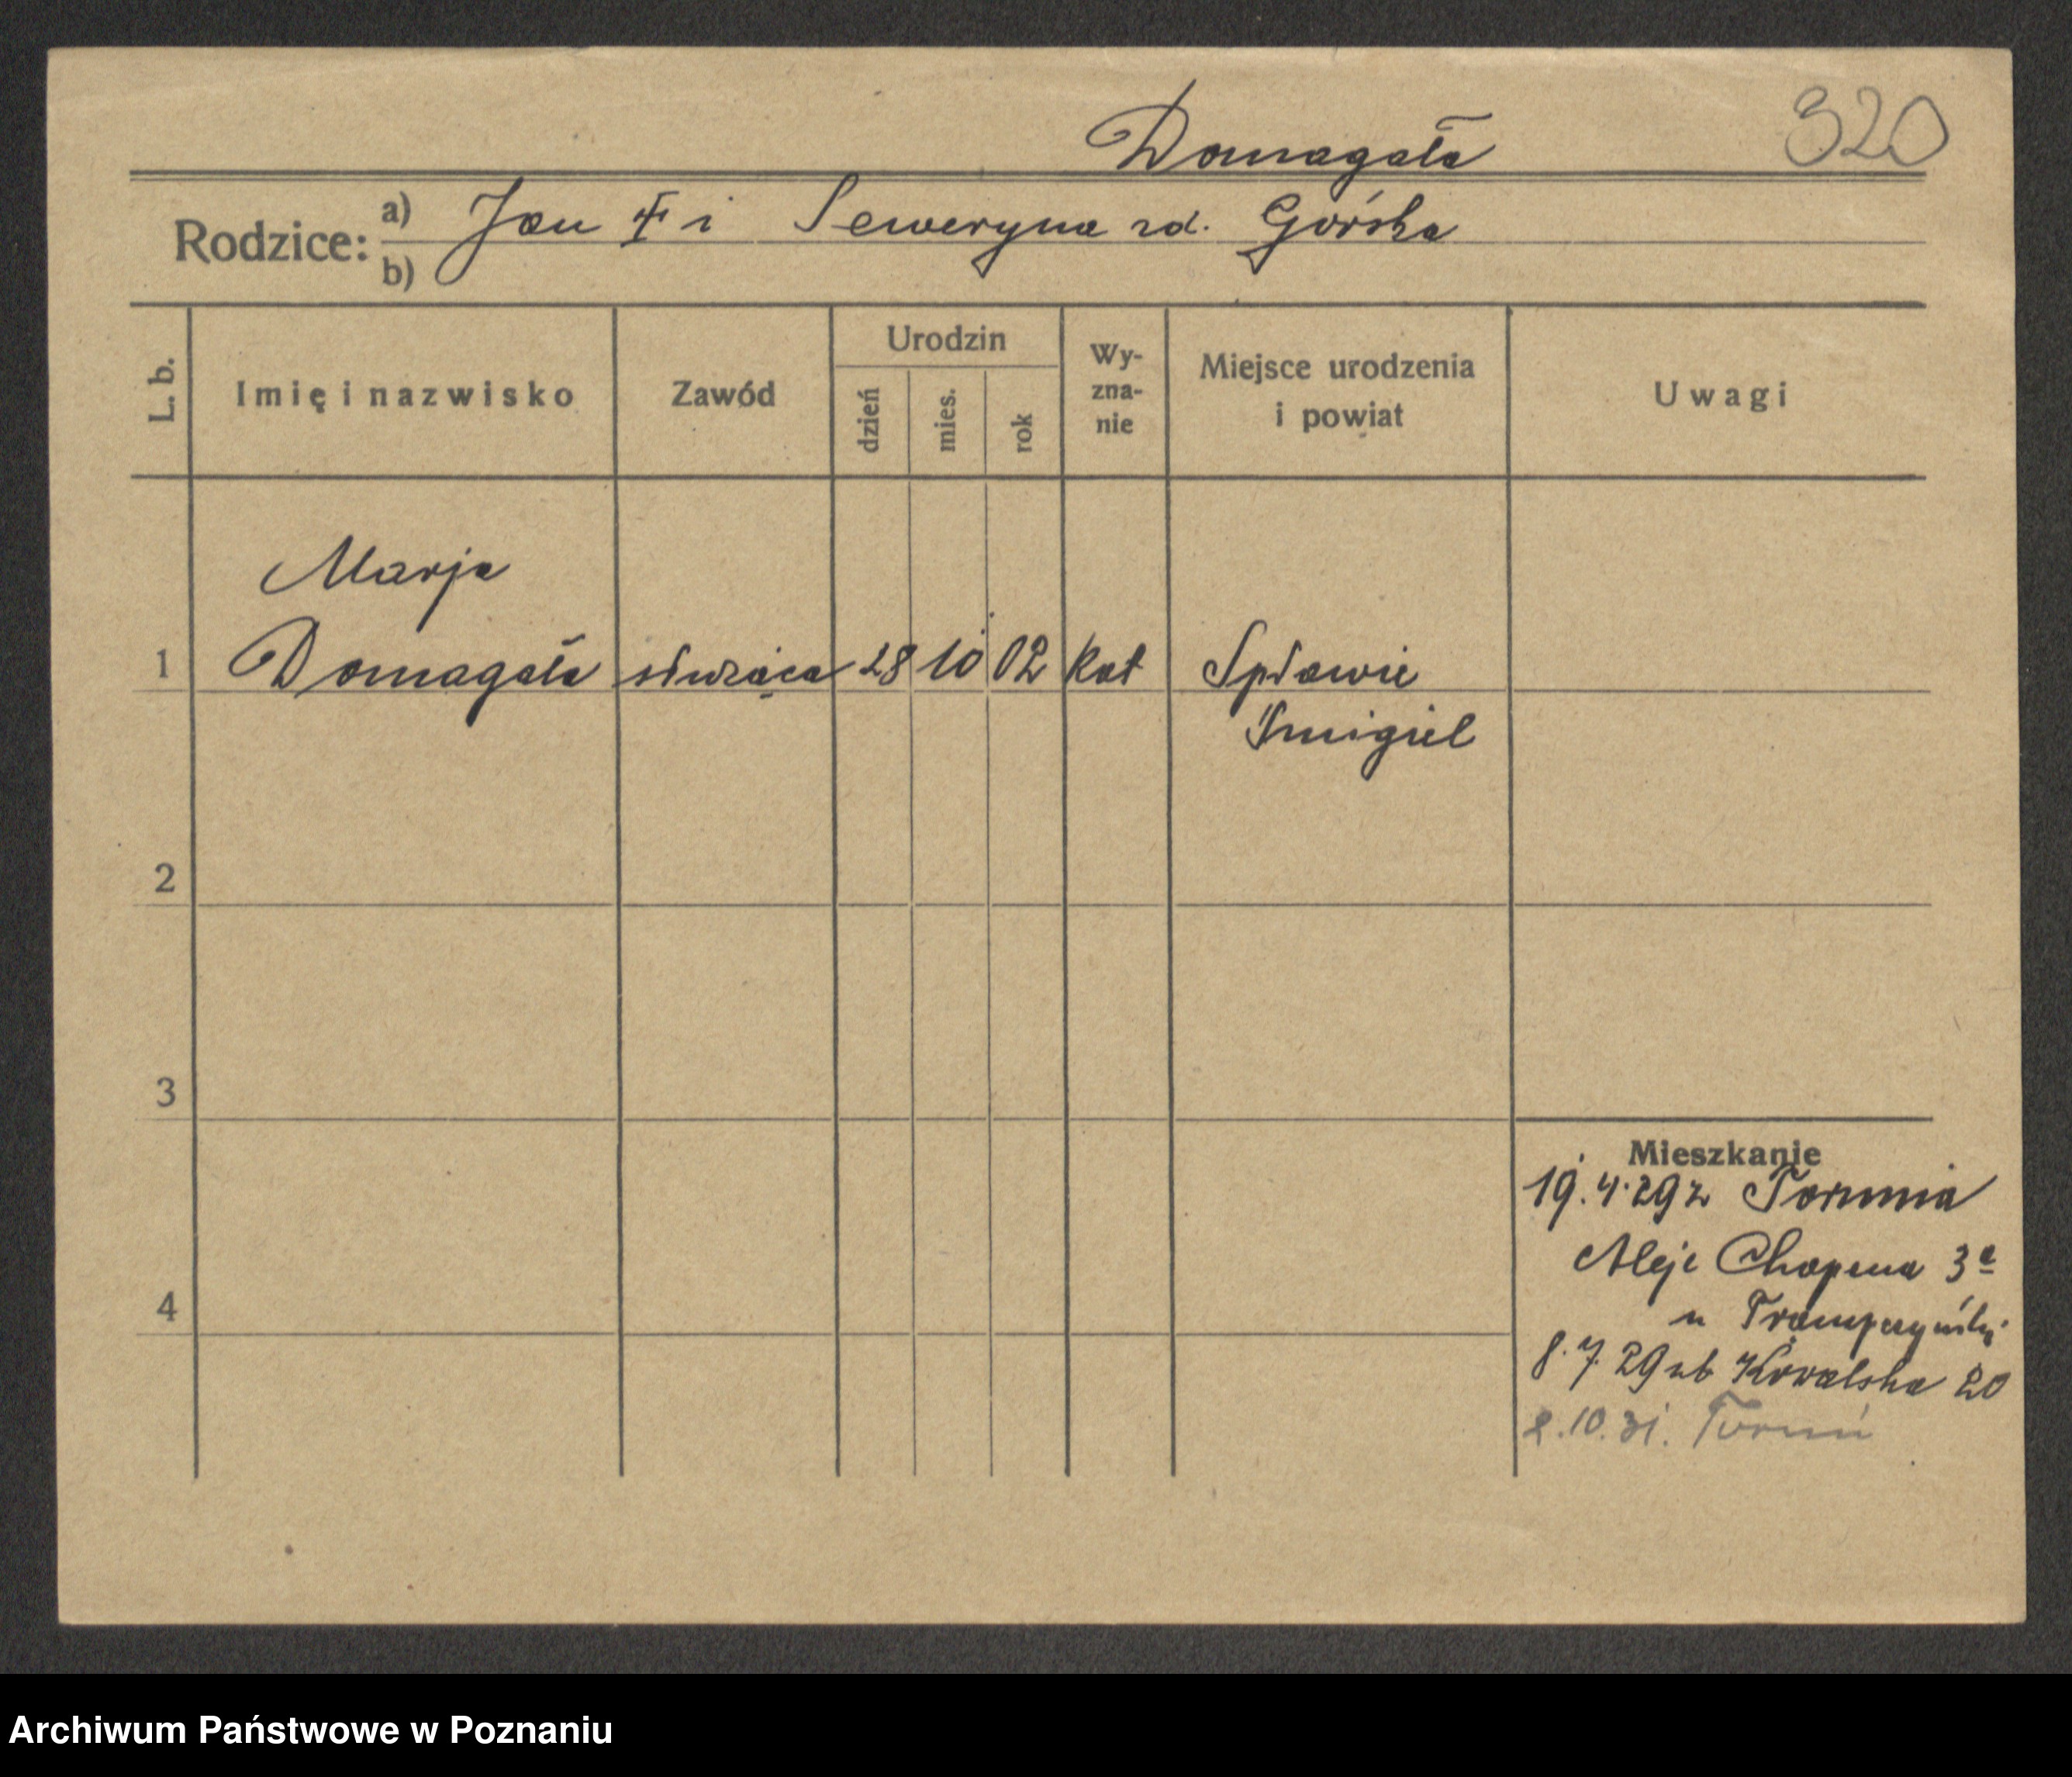 Domagała 320
Rodzice: a) Jan † i Seweryna rd. Górska
b)
L. b. Imię i nazwisko Zawód Urodzin dzień mies. rok Wy-zna-nie Miejsce urodzenia i powiat Uwagi
Marja
1 Domagała służąca 28 10 02 kat Spławie
Śmigiel
2
3
Mieszkanie
19.4.29 z Torunia
Aleje Chopena 3a
4 u Trąmpczyński
8.7.29 ub Kowalska 20
2.10.31. Toruń
Archiwum Państwowe w Poznaniu